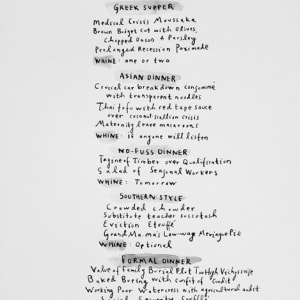 GREEK SUPPER
Medical Crisis Moussaka
Brown Budget Cut with Olives,
Chopped Onion & Parsley
Prolonged Recession
WHINE: one or two
ASIAN DINNER
Crucial car breakdown consommé
with transparent noodles
Thai tofu with red tape sauce
over coconut bullion crisis
Maternity leave macaroons
WHINE: if anyone will listen
NO-FUSS DINNER
Tagine of Timber over Qualification
Salad of Seasonal Workers
WHINE: Tomorrow
SOUTHERN STYLE
Crowded chowder
Substitute teacher succotash
Eviction Etouffé
GrandMama's Low-wage Meringue Pie
WHINE: Optional
FORMAL DINNER
Value of Family Burial Plot
Baked Boeing with confit of Credit
Working Poor Watercress with agricultural audit